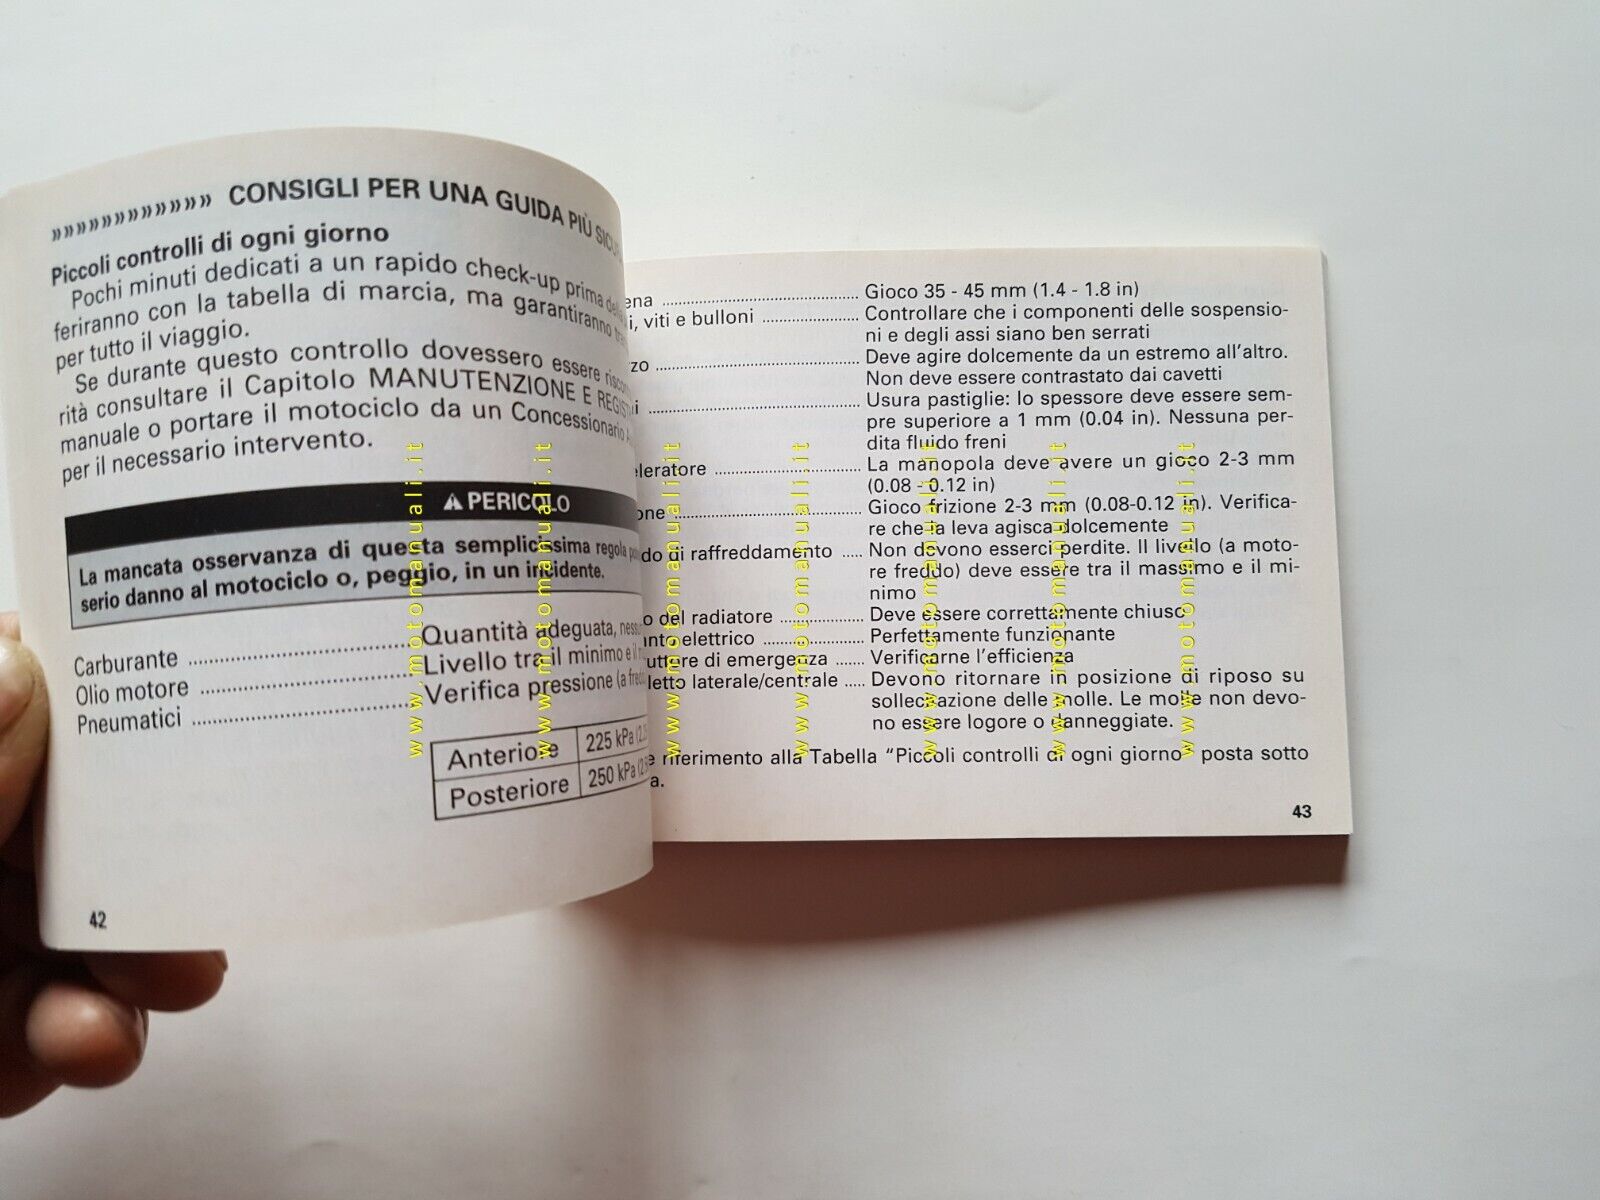 »»»»»»»»»»»» CONSIGLI PER UNA GUIDA PIÙ
Piccoli controlli di ogni giorno
Pochi minuti dedicati a un rapido check-up prima
feriranno con la tabella di marcia, ma garantiranno
per tutto il viaggio.
Se durante questo controllo dovessero essere
rità consultare il Capitolo MANUTENZIONE E
manuale o portare il motociclo da un Concessionario
per il necessario intervento.
⚠ PERICOLO
La mancata osservanza di questa semplicissima regola
serio danno al motociclo o, peggio, in un incidente.
Carburante ........ Quantità adeguata,
Olio motore ........ Livello tra il minimo e il
Pneumatici ........ Verifica pressione (a
Anteriore 225 kPa
Posteriore 250 kPa
42
ena ........ Gioco 35 - 45 mm (1.4 - 1.8 in)
i, viti e bulloni ........ Controllare che i componenti delle sospensio-
ni e degli assi siano ben serrati
zo ........ Deve agire dolcemente da un estremo all'altro.
Non deve essere contrastato dai cavetti
i ........ Usura pastiglie: lo spessore deve essere sem-
pre superiore a 1 mm (0.04 in). Nessuna per-
dita fluido freni
leratore ........ La manopola deve avere un gioco 2-3 mm
(0.08 - 0.12 in)
one ........ Gioco frizione 2-3 mm (0.08-0.12 in). Verifica-
re che la leva agisca dolcemente
do di raffreddamento ..... Non devono esserci perdite. Il livello (a moto-
re freddo) deve essere tra il massimo e il mi-
nimo
o del radiatore ........ Deve essere correttamente chiuso
nto elettrico ........ Perfettamente funzionante
uttore di emergenza ....... Verificarne l'efficienza
letto laterale/centrale ..... Devono ritornare in posizione di riposo su
sollecitazione delle molle. Le molle non devo-
no essere logore o danneggiate.
e riferimento alla Tabella “Piccoli controlli di ogni giorno” posta sotto
a.
43
www.motomanuali.it
www.motomanuali.it
www.motomanuali.it
www.motomanuali.it
www.motomanuali.it
www.motomanuali.it
www.motomanuali.it